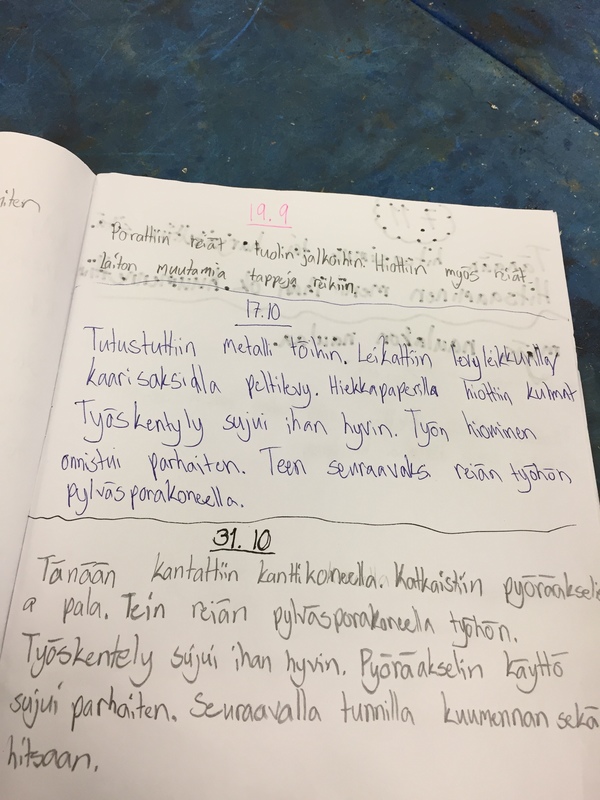 iten
19.9
Porattiin reiät tuolin jalkoihin. Hiottiin myös reiät.
Laiton muutamia tappeja reikiin.
17.10
Tutustuttiin metalli töihin. Leikattiin levyleikkurilla
kaarisaksidla peltilevy. Hiekkapaperilla hiottiin kulmat
Työskentyly sujui ihan hyvin. Työn hiominen
onnistui parhaiten. Teen seuraavaksi reiän työhön
pylväsporakoneella.
31. 10
Tänään kantattiin kanttikoneella. Katkaistiin pyöräakseli
a pala. Tein reiän pylväsporakoneella työhön.
Työskentely sujui ihan hyvin. Pyöräakselin käyttö
sujui parhaiten. Seuraavalla tunnilla kuumennan sekä
hitsaan.